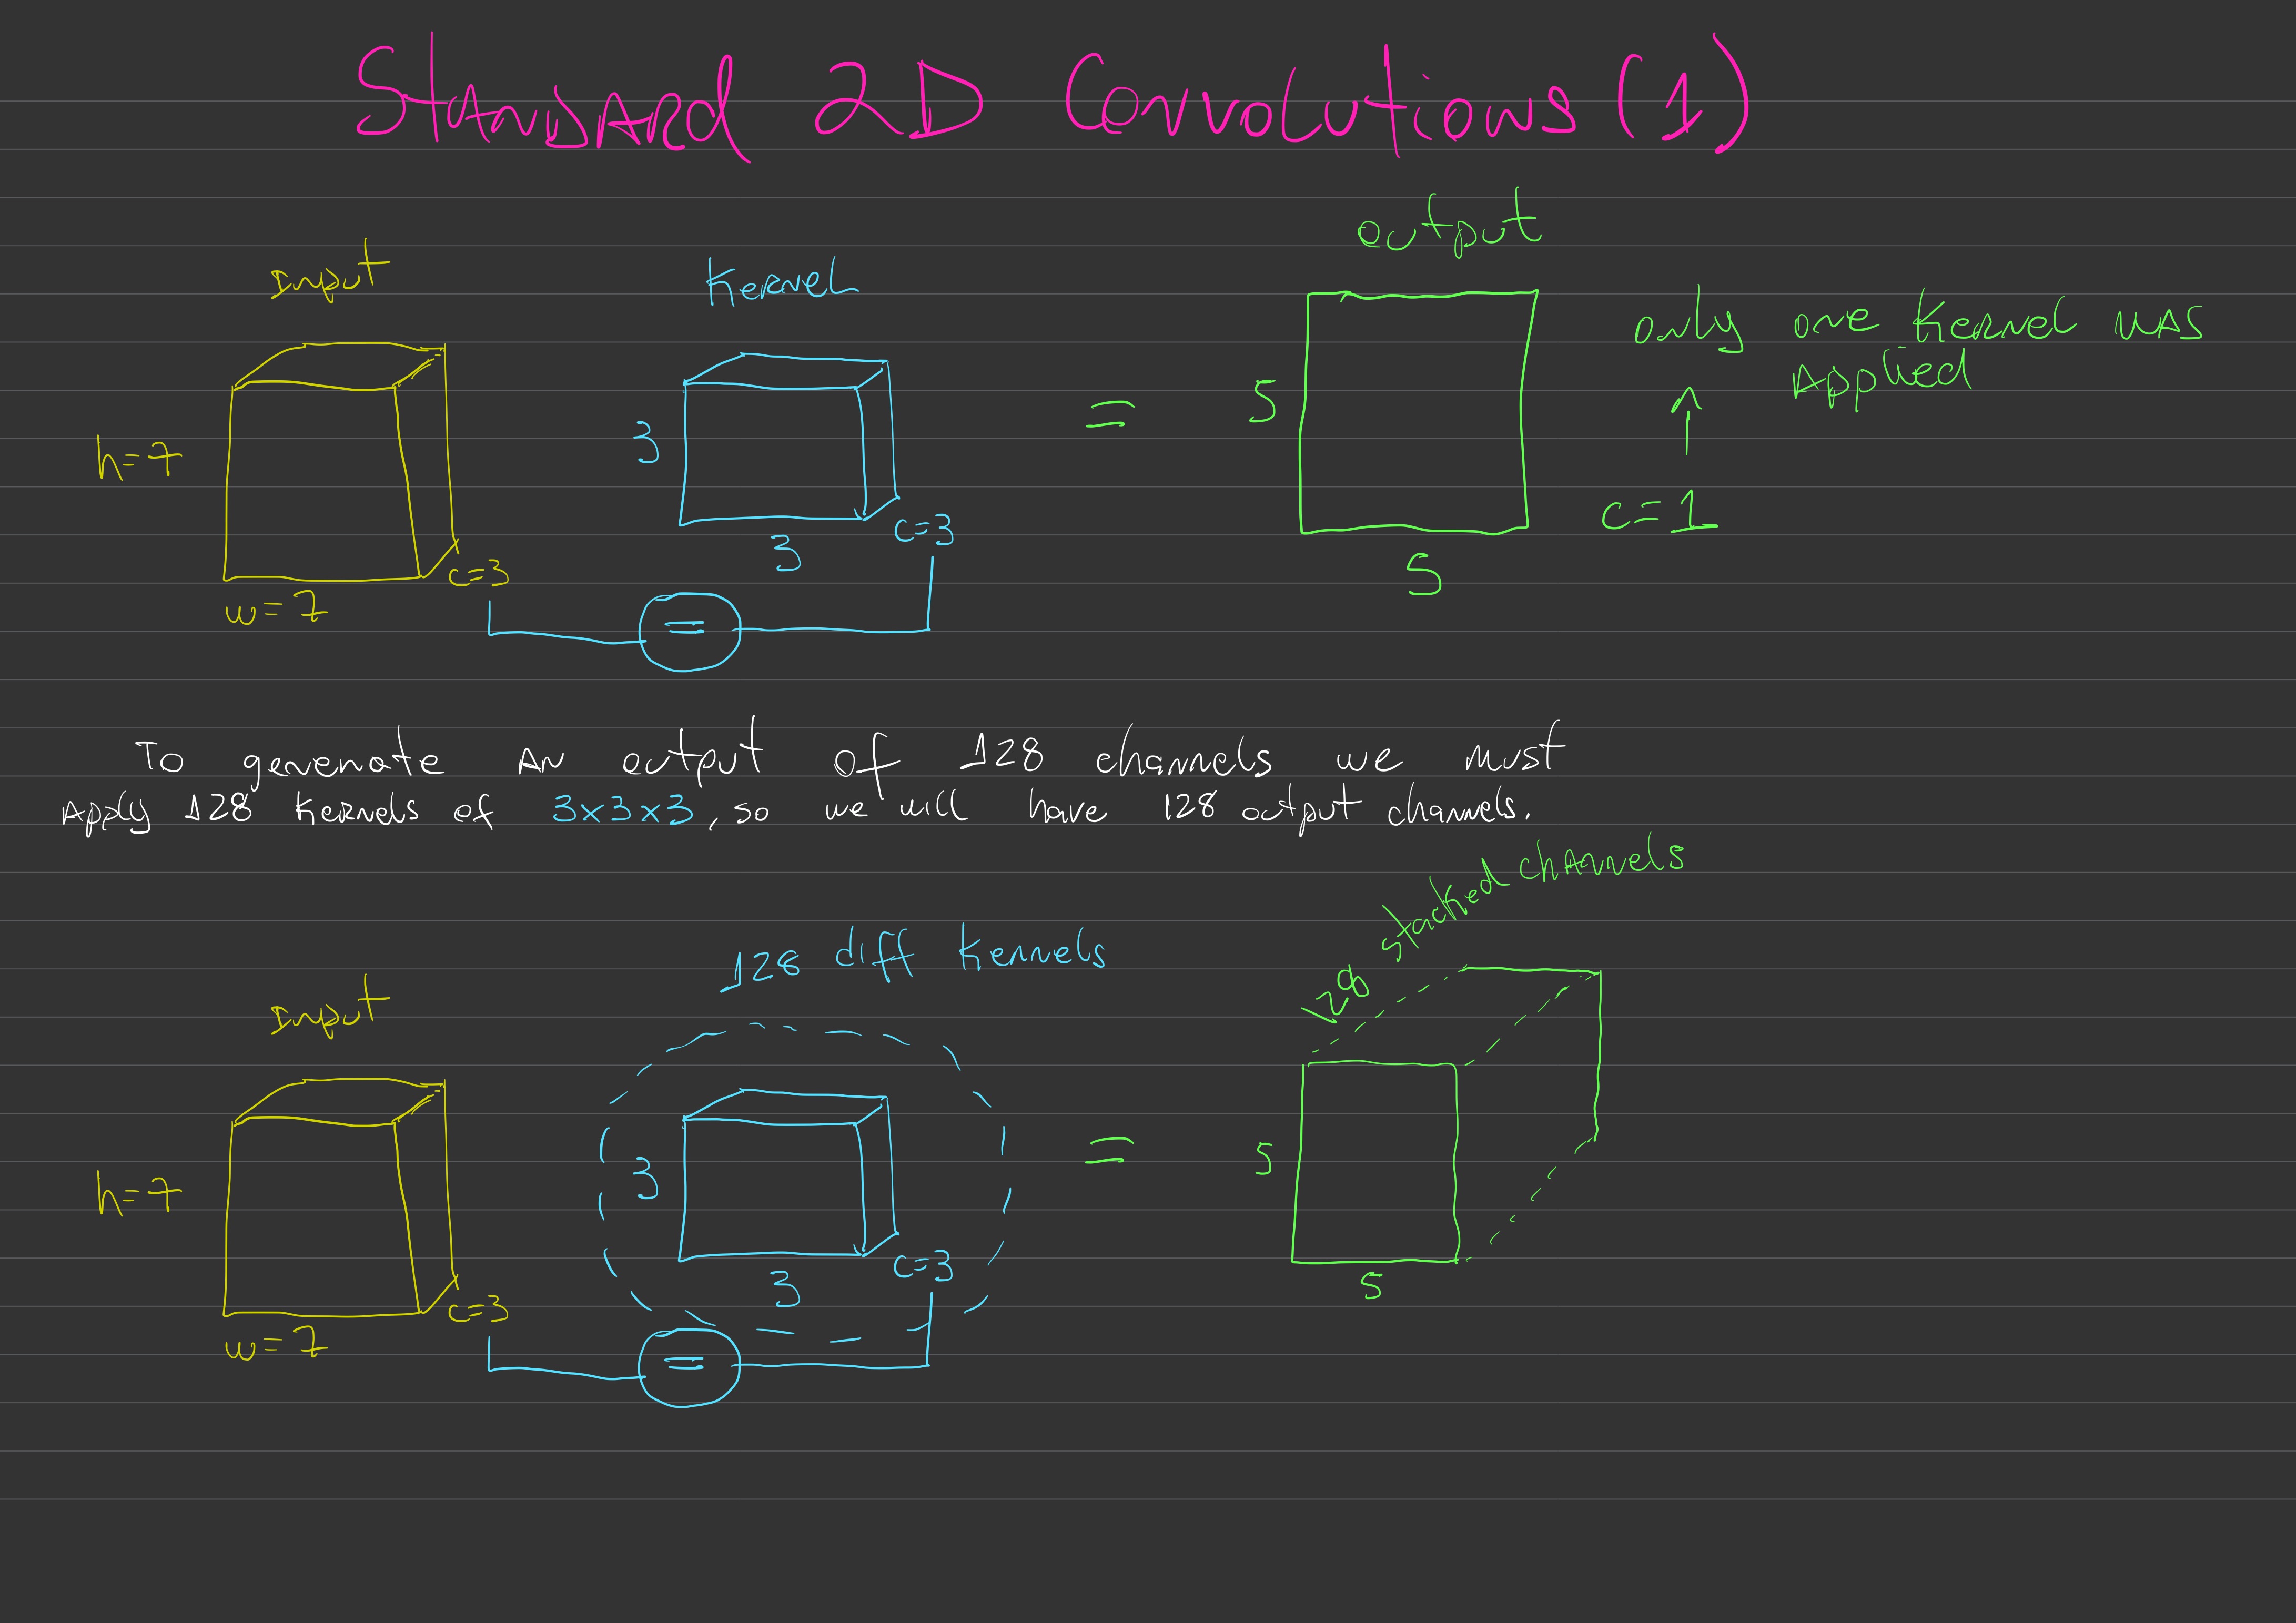 Standard 2D Convolutions (1)
Input
Kernel
output
h=7
w=7
c=3
3
3
c=3
=
=
5
5
only one kernel was
applied
↑
c=1
To generate an output of 128 channels we must
apply 128 kernels of 3x3x3, so we will have 128 output channels.
Input
128 diff kernels
128 stacked channels
h=7
w=7
c=3
3
3
c=3
=
=
5
5